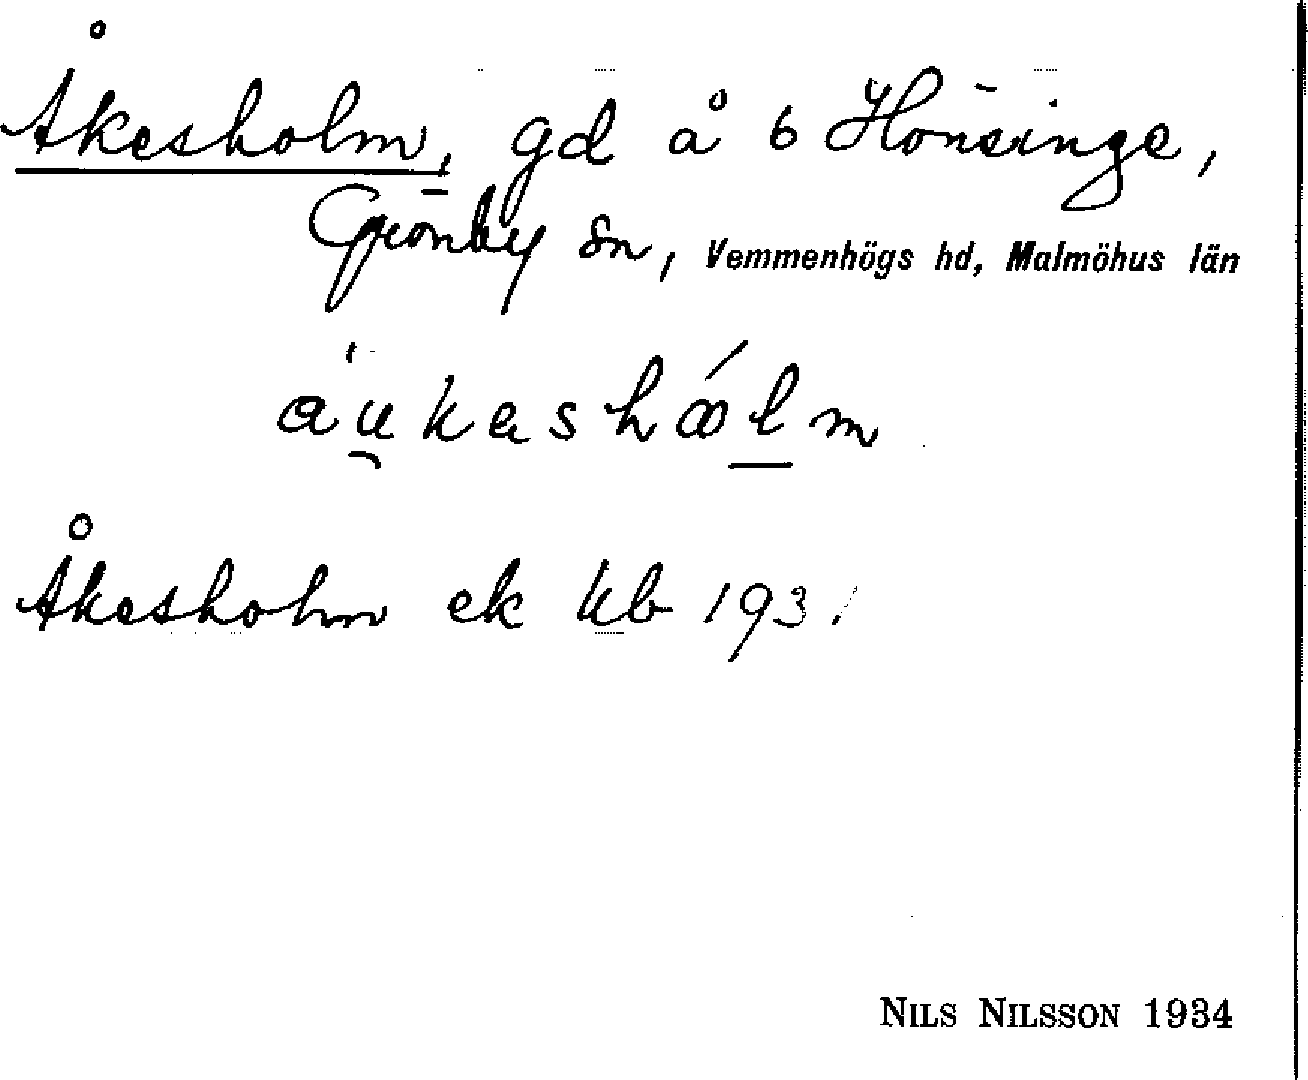 Åkesholm, gd å 6 Hönsinge,
Grönby sn, Vemmenhögs hd, Malmöhus län
Åkesholm ek kb 193
NILS NILSSON 1934